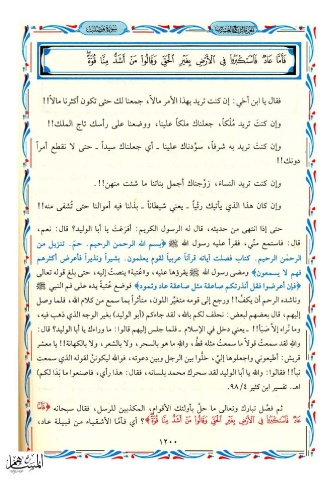 سورة فصلت
فَأَمَّا عَادٌ فَاسْتَكْبَرُوا فِي الْأَرْضِ بِغَيْرِ الْحَقِّ وَقَالُوا مَنْ أَشَدُّ مِنَّا قُوَّةً
فقال يا ابن أخي: إن كنت تريد بهذا الأمر مالاً، جمعنا لك حتى تكون أكثرنا مالاً!!
وإن كنت تريد مُلْكاً، جعلناك ملكاً علينا، ووضعنا على رأسك تاج الملك!!
وإن كنت تريد به شرفاً، سوّدناك علينا ـ أي جعلناك سيداً ـ حتى لا نقطع أمراً
دونك!!
وإن كنت تريد النساء، زوّجناك أجمل بناتنا ما شئت منهن!!.
وإن كان هذا الذي يأتيك رئيّاً ـ يعني شيطاناً ـ بذلنا فيه أموالنا حتى تُشفى منه!!
حتى إذا انتهى من حديثه، قال له الرسول الكريم: أفرَغتَ يا أبا الوليد؟ قال: نعم،
قال: فاستمع منّي، فقرأ عليه رسول الله ﷺ ﴿بسم الله الرحمن الرحيم. حمَ. تنزيل من
الرحمن الرحيم. كتاب فصلت آياته قرآناً عربياً لقوم يعلمون. بشيراً ونذيراً فأعرض أكثرهم
فهم لا يسمعون﴾ ومضى رسول الله ﷺ يقرؤها عليه، و«عُتبة» ينصتُ إليه، حتى بلغ قوله تعالى
﴿فإن أعرضوا فقل أنذرتكم صاعقة مثل صاعقة عاد وثمود﴾ فوضع عُتبةُ يده على فم النبي ﷺ
وناشده الرحم أن يكفّ!! ورجع إلى قومه متغيّر اللون، متأثراً بما سمع من كلام الله، فلما وصل
إليهم، قال بعضهم لبعض: نحلف لكم بالله، لقد جاءكم (أبو الوليد) بغير الوجه الذي ذهب فيه،
وما نُراه إلاّ صَبَأ!! ـ يعني دخل في الإسلام ـ فلما جلس إليهم قالوا: ما وراءك يا أبا الوليد؟ قال:
والله لقد سمعتُ قولاً ما سمعتُ مثله قطُّ، والله ما هو بالسحر، ولا بالشعر، ولا بالكهانة!! يا معشر
قريش: أطيعوني واجعلوها إليّ، خلُّوا بين الرجل وبين دعوته، فوالله ليكوننّ لقوله الذي سمعت
نبأ!! فقالوا: والله يا أبا الوليد لقد سحرك محمد بلسانه، فقال: هذا رأي، فاصنعوا ما بَدَا لكم)
اهـ. تفسير ابن كثير ٩٨/٤.
ثم فصّل تبارك وتعالى ما حلّ بأولئك الأقوام، المكذبين للرسل، فقال سبحانه ﴿فَأَمَّا
عَادٌ فَاسْتَكْبَرُوا فِي الْأَرْضِ بِغَيْرِ الْحَقِّ وَقَالُوا مَنْ أَشَدُّ مِنَّا قُوَّةً﴾؟ أي فأمّا الأشقياء من قبيلة عاد،
١٢٠٠